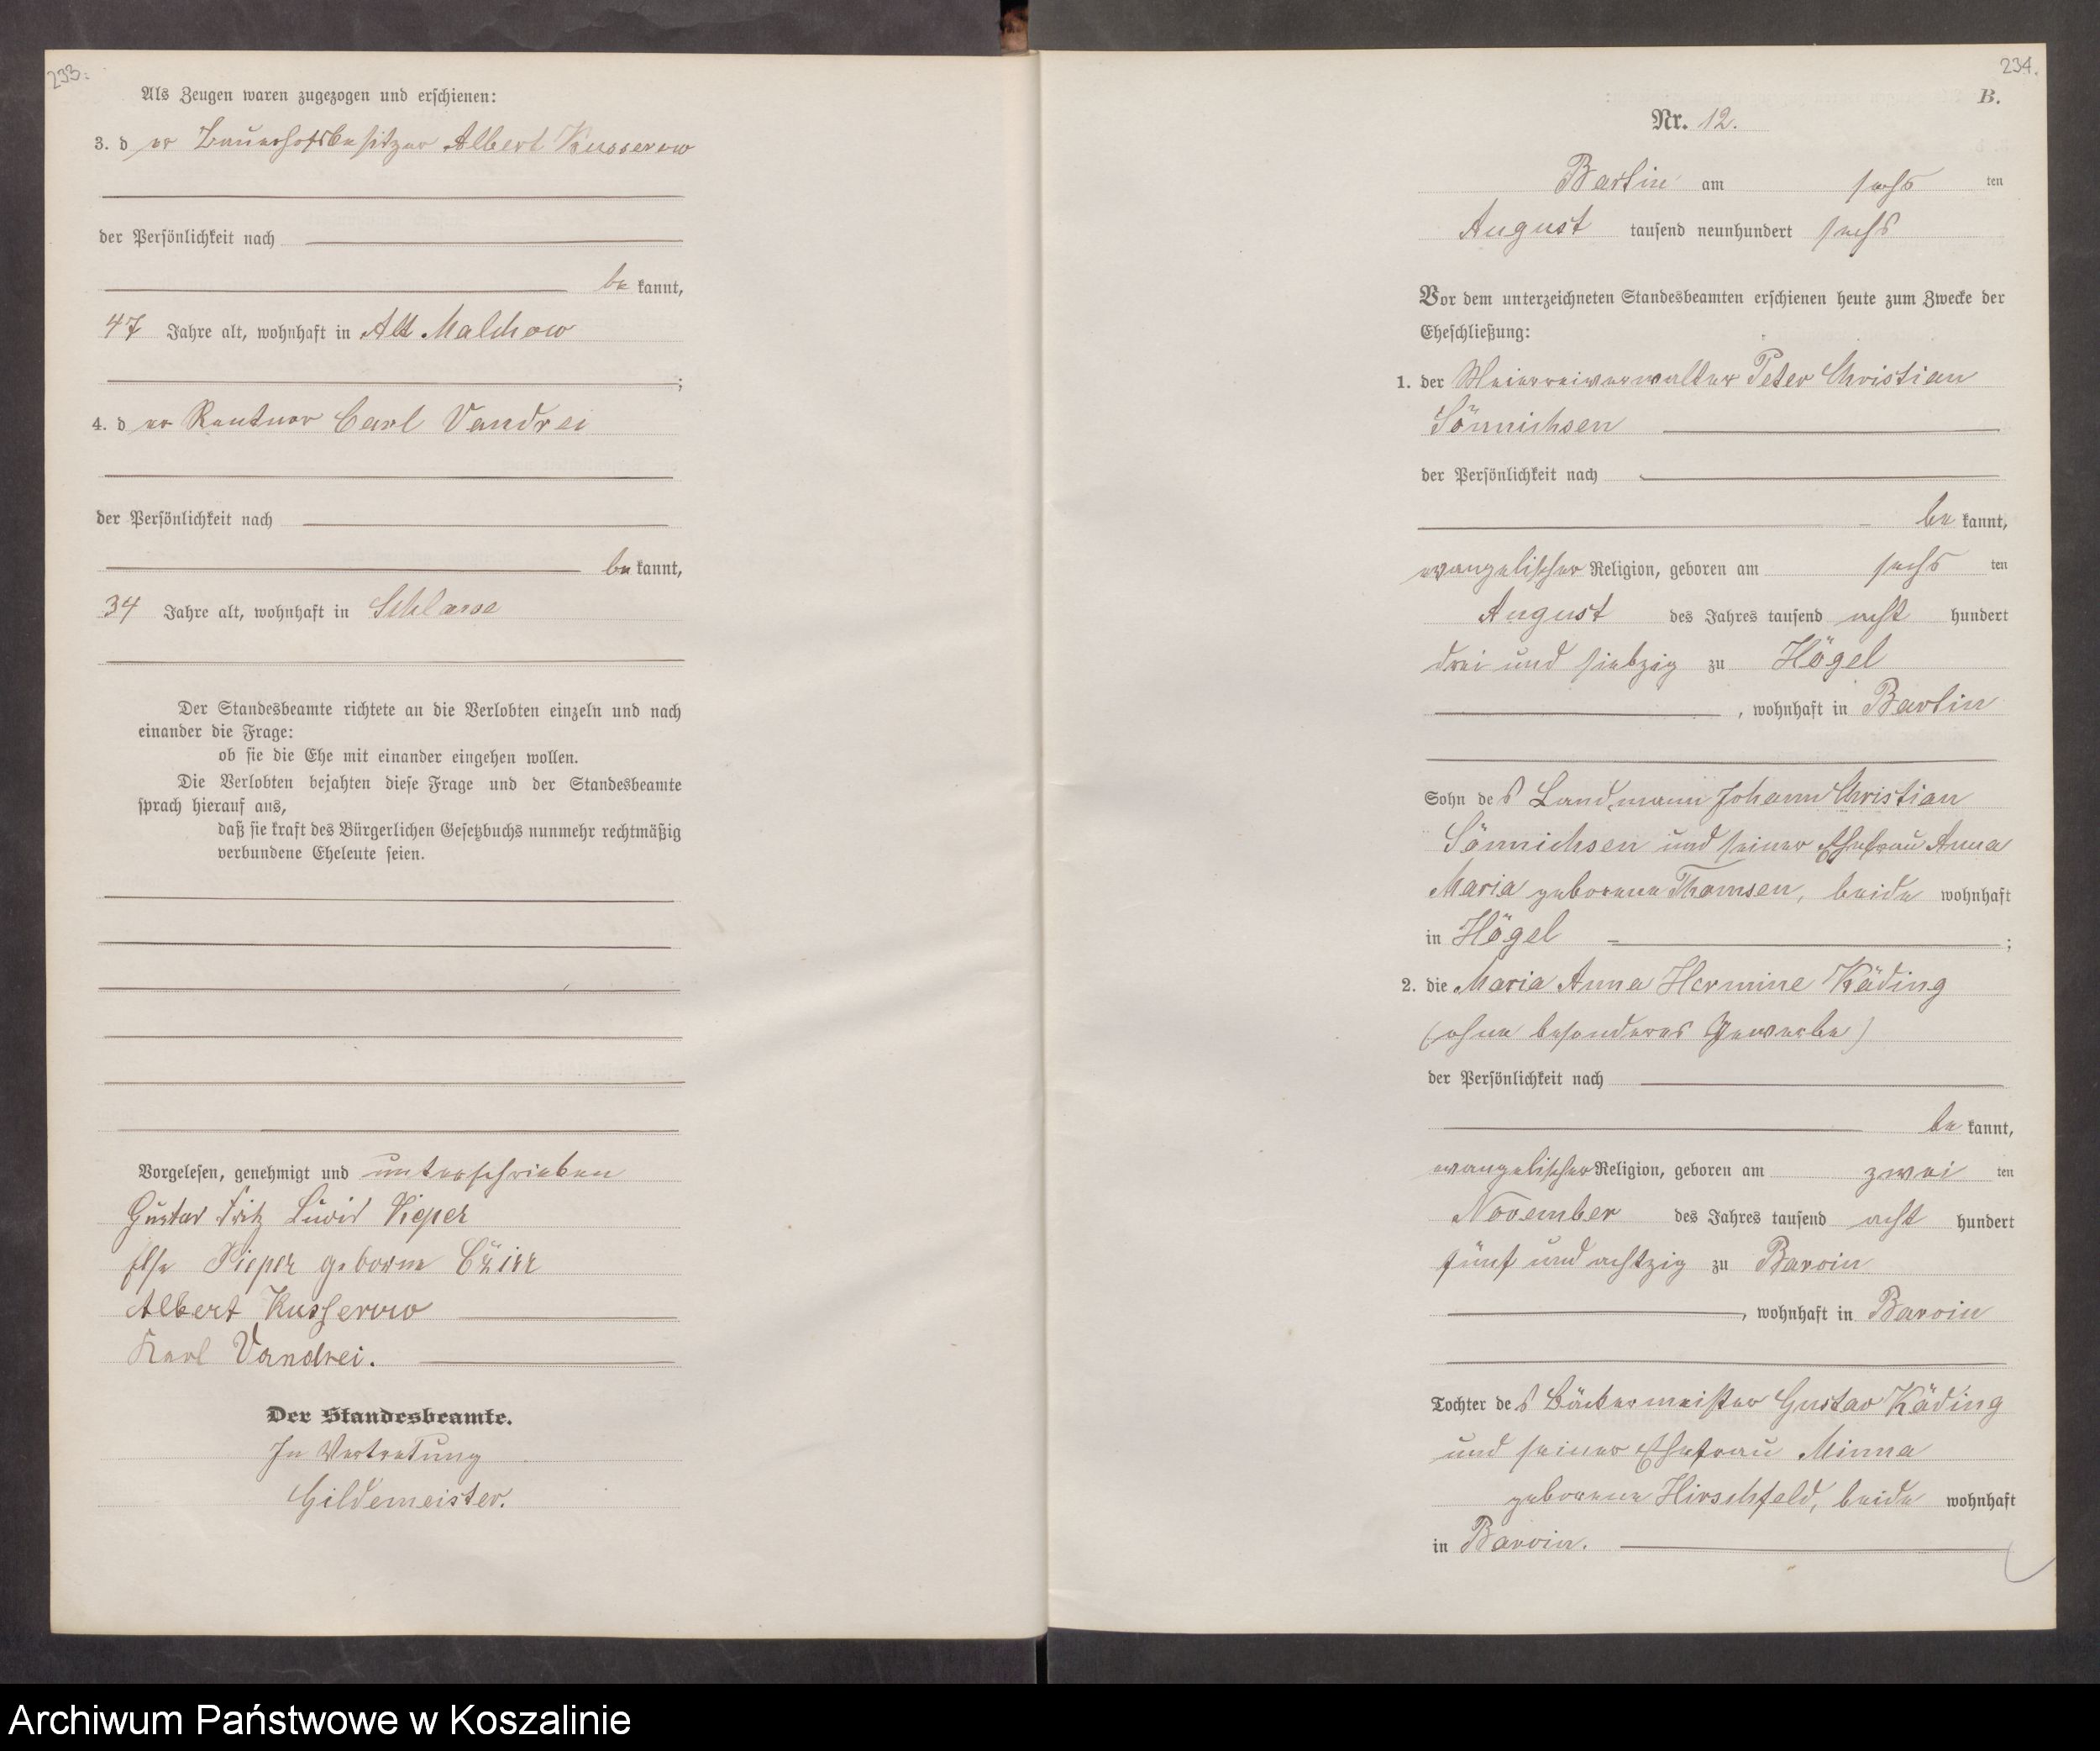 233.
Als Zeugen waren zugezogen und erschienen:
3. d er Bauerhofsbesitzer Albert Kusserow
der Persönlichkeit nach
be kannt,
47 Jahre alt, wohnhaft in Alt Malchow
;
4. d er Rentner Carl Vandrei
der Persönlichkeit nach
be kannt,
34 Jahre alt, wohnhaft in Schlawe
Der Standesbeamte richtete an die Verlobten einzeln und nach
einander die Frage:
ob sie die Ehe mit einander eingehen wollen.
Die Verlobten bejahten diese Frage und der Standesbeamte
sprach hierauf aus,
daß sie kraft des Bürgerlichen Gesetzbuchs nunmehr rechtmäßig
verbundene Eheleute seien.
Vorgelesen, genehmigt und unterschrieben
Gustav Fritz Pieper
Else Pieper geborne
Albert Kusserow
Karl Vandrei.
Der Standesbeamte.
In Vertretung
Gildemeister.
234.
B.
Nr. 12.
Bartin am sechs ten
August tausend neunhundert sechs
Vor dem unterzeichneten Standesbeamten erschienen heute zum Zwecke der
Eheschließung:
1. der Meiereiverwalter Peter Christian
Sönnichsen
der Persönlichkeit nach
be kannt,
evangelischer Religion, geboren am sechs ten
August des Jahres tausend acht hundert
drei und siebzig zu Högel
, wohnhaft in Bartin
Sohn de s Landmann Johann Christian
Sönnichsen und seiner Ehefrau Anna
Maria geborene Thomsen, beide wohnhaft
in Högel ;
2. die Maria Anna Hermine Käding
(ohne besonderes Gewerbe)
der Persönlichkeit nach
be kannt,
evangelischer Religion, geboren am zwei ten
November des Jahres tausend acht hundert
fünf und achtzig zu Barvin
, wohnhaft in Barvin
Tochter de s Bäckermeister Gustav Käding
und seiner Ehefrau Minna
geborene Hirschfeld, beide wohnhaft
in Barvin.
Archiwum Państwowe w Koszalinie